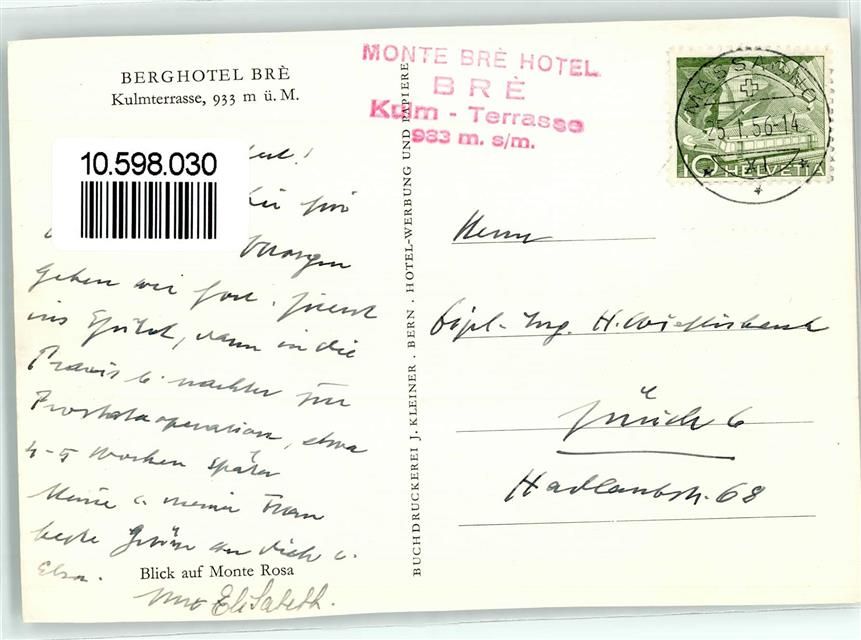 BERGHOTEL BRÈ
Kulmterrasse, 933 m ü. M.
10.598.030
Morgen
gehen wir fort. Zuerst
ins Spital, dann in die
Praxis u. nachher zur
Prostataoperation, etwa
4-5 Wochen später
Meine u. meiner Frau
beste Grüsse an dich u.
Elsa.
Blick auf Monte Rosa
Elisabeth.
BUCHDRUCKEREI J. KLEINER . BERN . HOTEL-WERBUNG UND PAPIERE
MONTE BRÈ HOTEL
BRÈ
Kulm - Terrasse
933 m. s/m.
MASSAGNO
25.1.56-14
XI
10 HELVETIA
Herrn
Dipl.-Ing. H.
Zürich 6
Hadlaubstr. 68